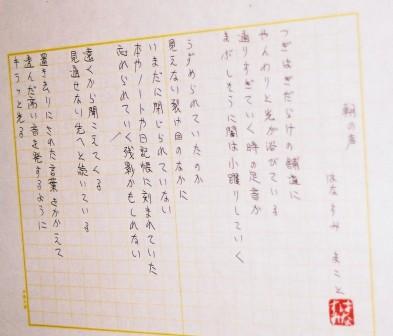 朝の音
はなすみ まこと
つぎはぎだらけの舗道に
やんわりと光が浴びている
通りすぎていく時の足音が
まぶしそうに闇は小躍りしていく
うずめられていたのか
見えない裂け目のなかに
いまだに閉じられていない
本やノートや日記帳に刻まれていた
忘れられていく残影かもしれない
遠くから聞こえてくる
見通せない先へと続いている
置き去りにされた言葉をかかえて
澄んだ高い音を発するように
キラッと光る